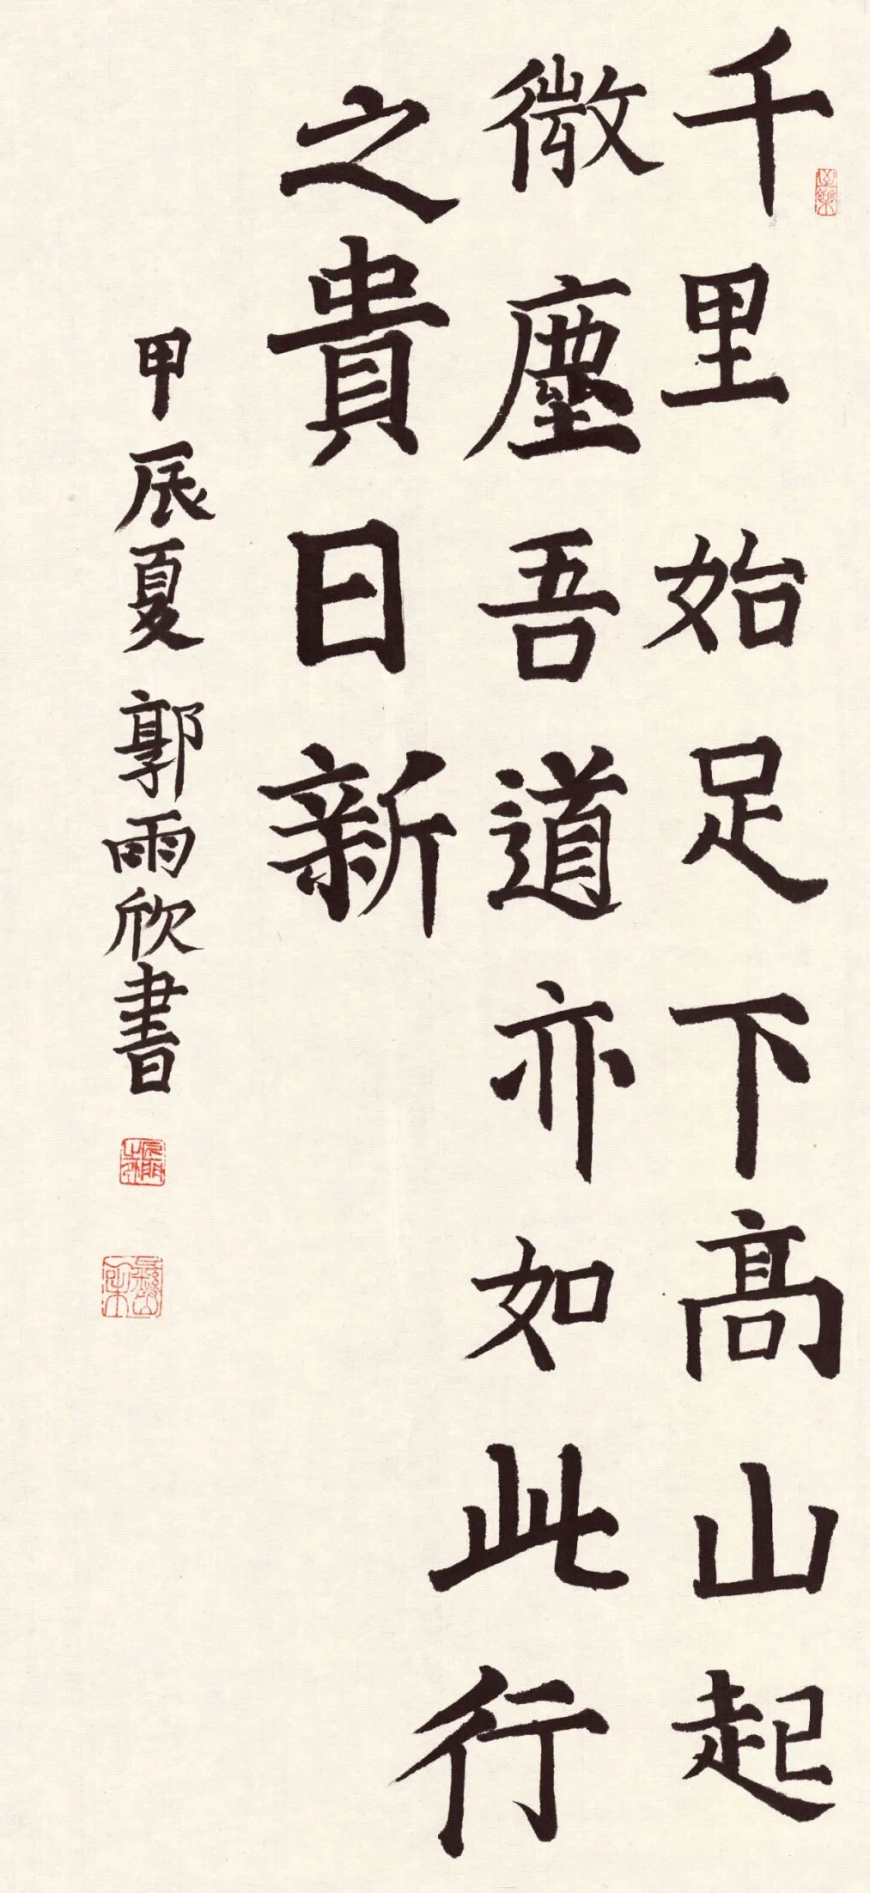 千里始足下高山起
微塵吾道亦如此行
之貴日新
甲辰夏 郭雨欣書